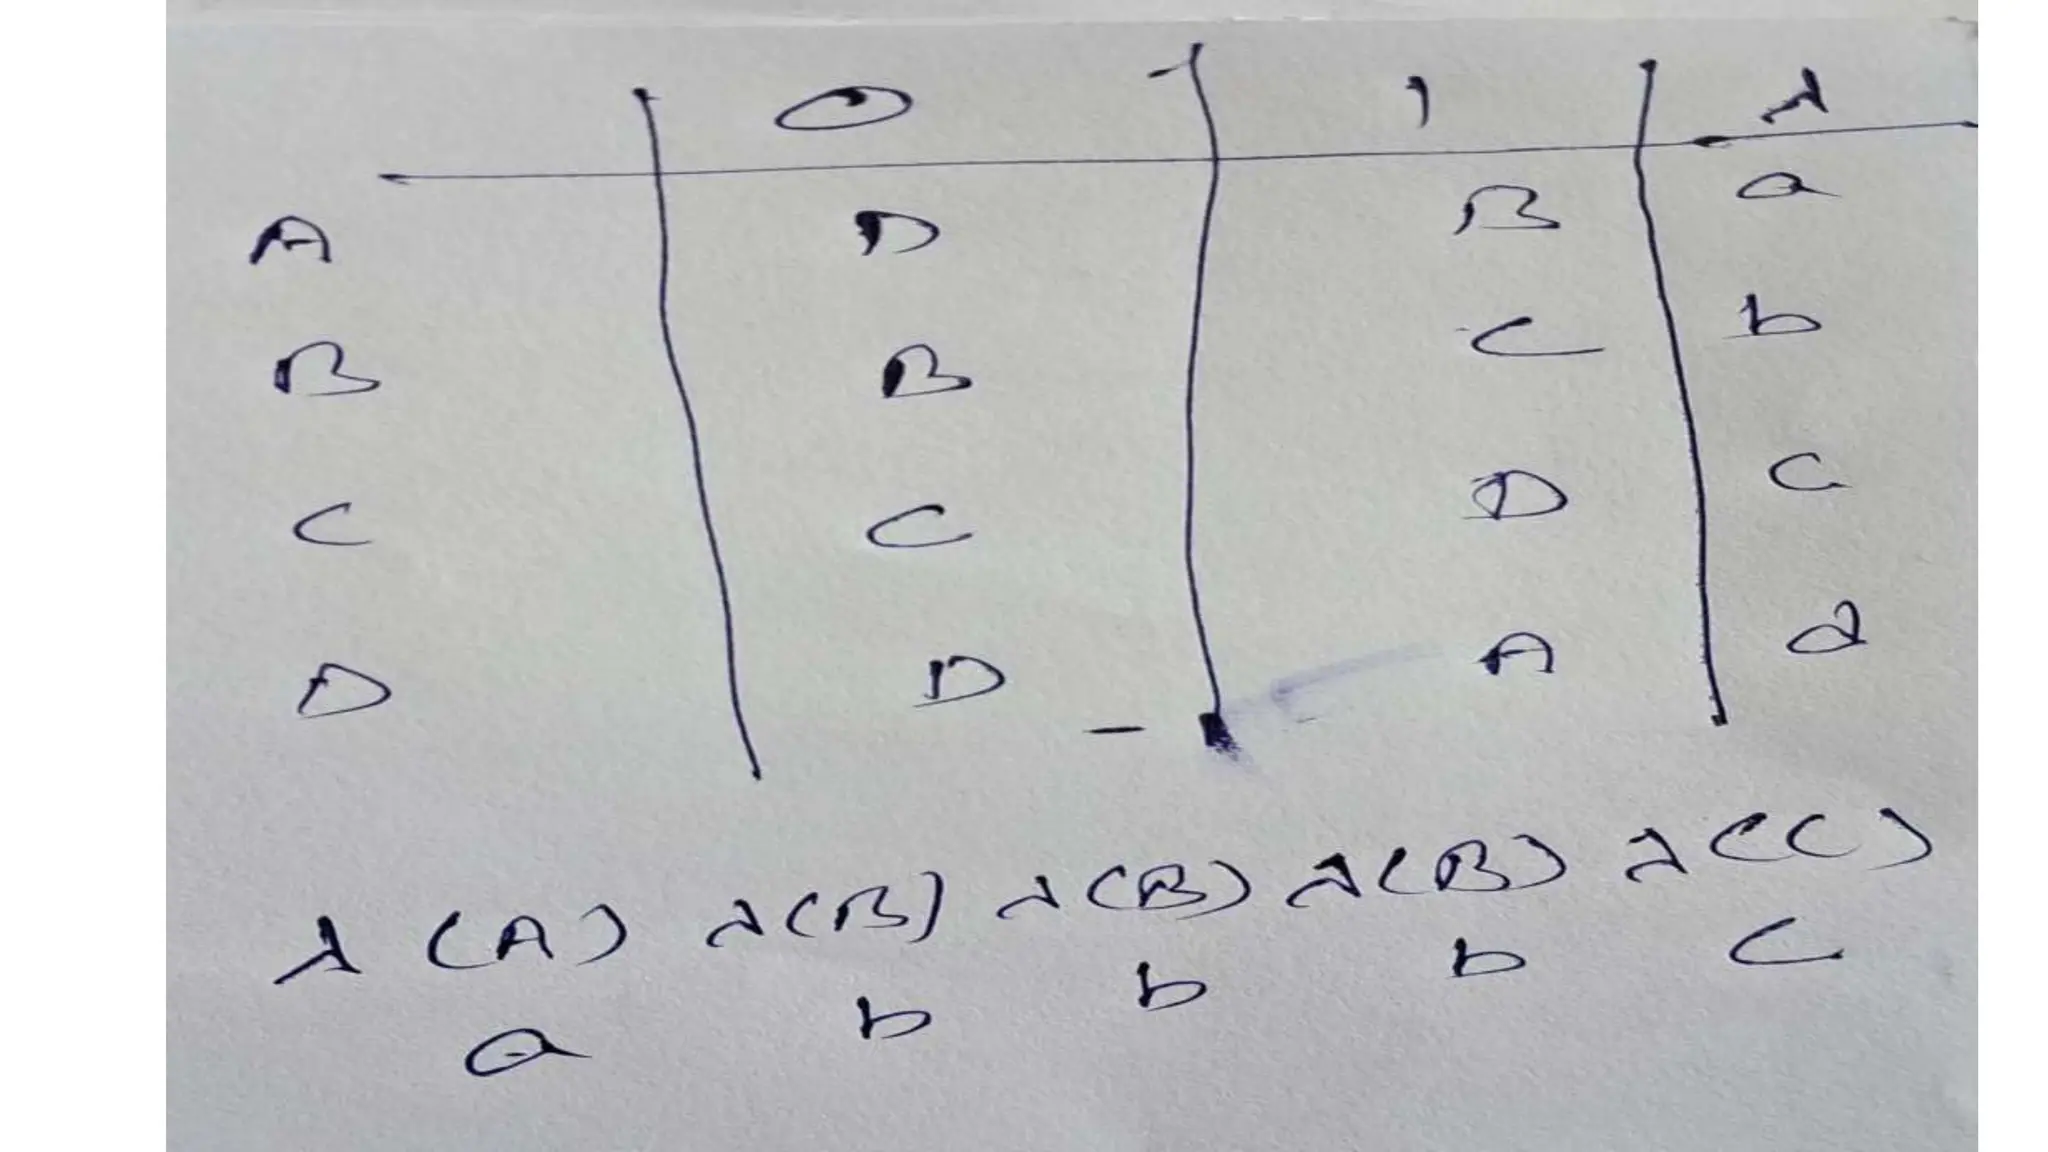 0 1 λ
A D B a
B B C b
C C D c
D D A d
λ (A) λ(B) λ(B) λ(B) λ(C)
a b b b c